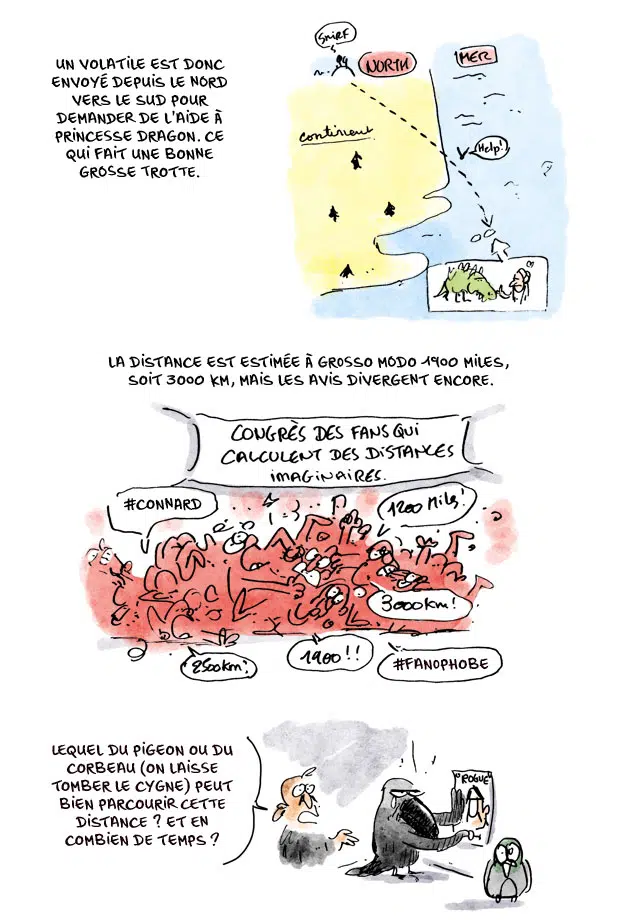 UN VOLATILE EST DONC
ENVOYÉ DEPUIS LE NORD
VERS LE SUD POUR
DEMANDER DE L'AIDE À
PRINCESSE DRAGON. CE
QUI FAIT UNE BONNE
GROSSE TROTTE.
SNIRF
NORTH
MER
continent
Help!
LA DISTANCE EST ESTIMÉE À GROSSO MODO 1900 MILES,
SOIT 3000 KM, MAIS LES AVIS DIVERGENT ENCORE.
CONGRÈS DES FANS QUI
CALCULENT DES DISTANCES
IMAGINAIRES.
#CONNARD
1200 Miles!
3000 km!
2500km!
1900!!
#FANOPHOBE
LEQUEL DU PIGEON OU DU
CORBEAU (ON LAISSE
TOMBER LE CYGNE) PEUT
BIEN PARCOURIR CETTE
DISTANCE ? ET EN
COMBIEN DE TEMPS ?
"ROGUE"